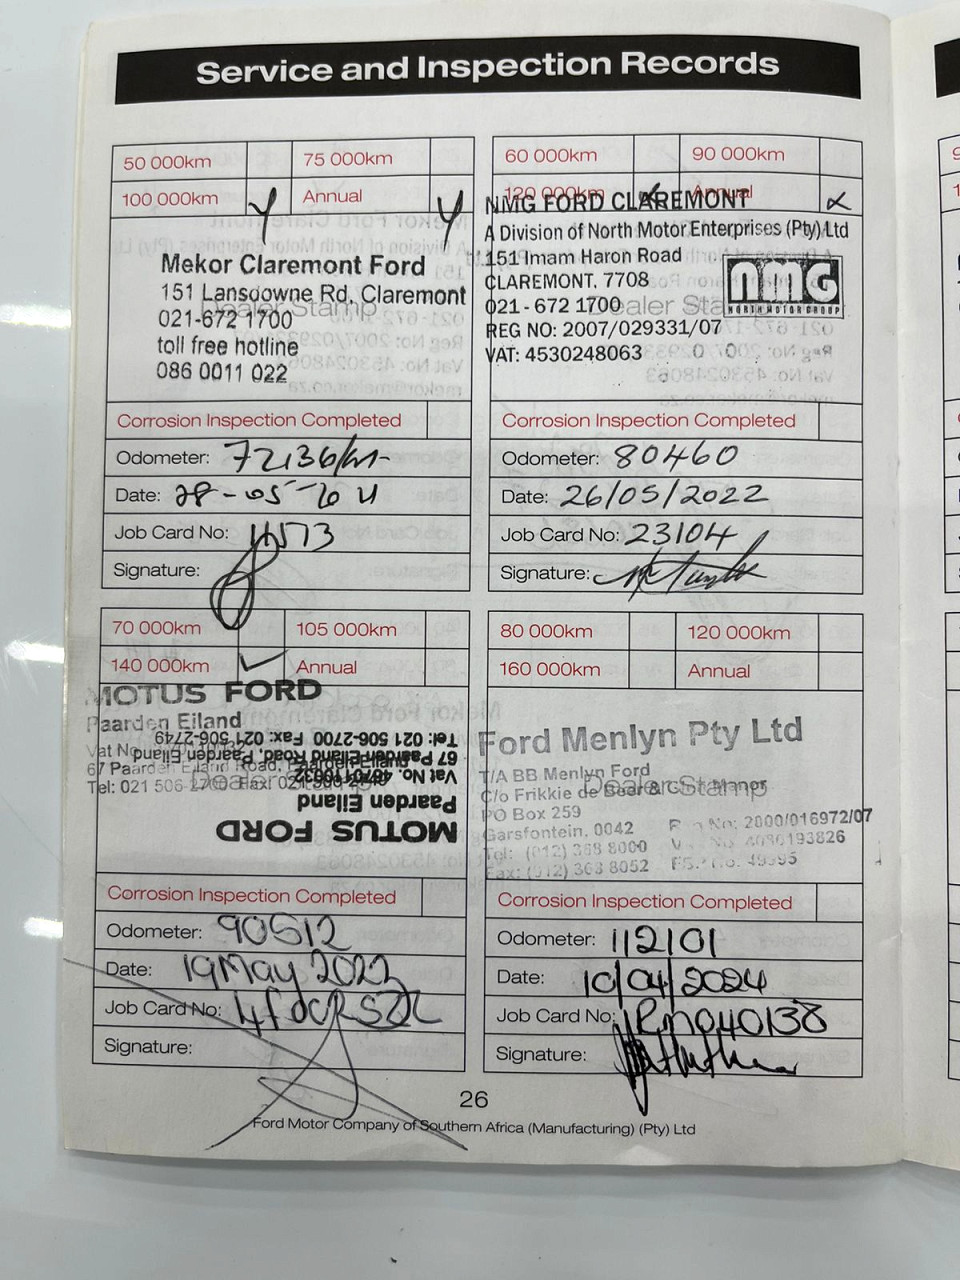 Service and Inspection Records
50 000km 75 000km
100 000km Y Annual Y
Mekor Claremont Ford
151 Lansdowne Rd, Claremont
Dealer Stamp
021-672 1700
toll free hotline
086 0011 022
Corrosion Inspection Completed
Odometer: 72136/km
Date: 28-05-2021
Job Card No:
Signature:
60 000km 90 000km
120 000km Annual
NMG FORD CLAREMONT
A Division of North Motor Enterprises (Pty) Ltd
151 Imam Haron Road
CLAREMONT. 7708
021 - 672 1700
Dealer Stamp
REG NO: 2007/029331/07
VAT: 4530248063
nmg
NORTH MOTOR GROUP
Corrosion Inspection Completed
Odometer: 80460
Date: 26/05/2022
Job Card No: 23104
Signature:
70 000km 105 000km
140 000km ✓ Annual
MOTUS FORD
Paarden Eiland
Vat No
67 Paarden Eiland Road, Paarden Eiland
Tel: 021 506-2700 Fax: 021 506-2749
Dealer Stamp
MOTUS FORD
Paarden Eiland
Vat No.
67 Paarden Eiland Road, Paarden Eiland
Tel: 021 506-2700 Fax: 021 506-2749
Corrosion Inspection Completed
Odometer: 90512
Date: 19 May 2023
Job Card No:
Signature:
80 000km 120 000km
160 000km Annual
Ford Menlyn Pty Ltd
T/A BB Menlyn Ford
C/o Frikkie de Beer &
Dealer Stamp
PO Box 259
Garsfontein, 0042
Tel: (012) 368 8000
Fax: (012) 363 8052
2000/016972/07
Corrosion Inspection Completed
Odometer: 112101
Date: 10/04/2024
Job Card No:
Signature:
26
Ford Motor Company of Southern Africa (Manufacturing) (Pty) Ltd